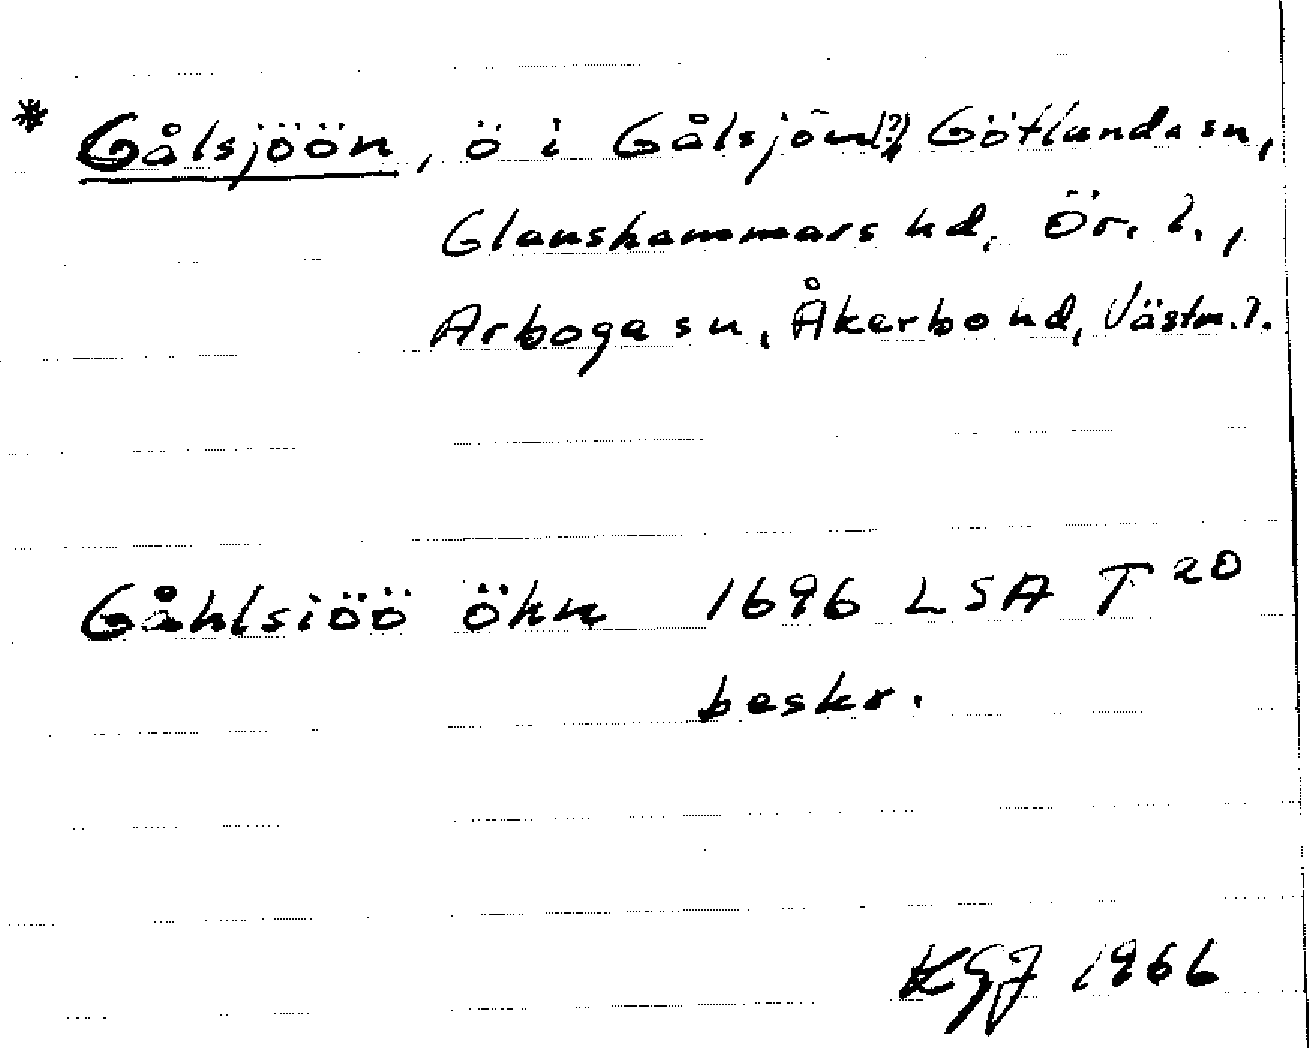 * Gålsjöön, ö i Gålsjön(?) Götlunda sn,
Glanshammars hd, Ör. l.,
Arboga sn, Åkerbo hd, Västm. l.
Gåhlsiöö öhn 1696 LSA T 20
beskr.
KGJ 1966